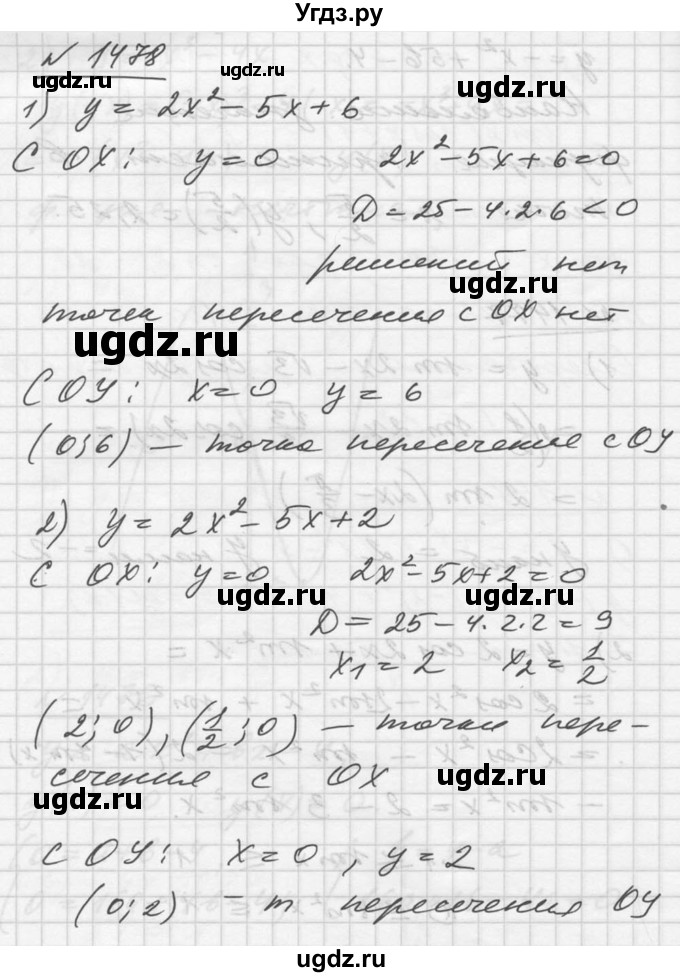 Угдз.ру
N 1478
ugdz.ru
ugdz.ru
1) y = 2x² - 5x + 6
С OX: y = 0 2x² - 5x + 6 = 0
ugdz.ru
ugdz.ru
D = 25 - 4·2·6 < 0
решений нет
ugdz.ru
точек пересечения с OX нет
ugdz.ru
С OY: x = 0 y = 6
ugdz.ru
(0; 6) — точка пересечение с OY
2) y = 2x² - 5x + 2
С OX: y = 0 2x² - 5x + 2 = 0
ugdz.ru
ugdz.ru
D = 25 - 4·2·2 = 9
x₁ = 2 x₂ = 1/2
(2; 0), (1/2; 0) — точки пере-
сечения с OX
ugdz.ru
ugdz.ru
С OY: x = 0, y = 2
(0; 2) - т пересечения OY
ugdz.ru
ugdz.ru
ugdz.ru